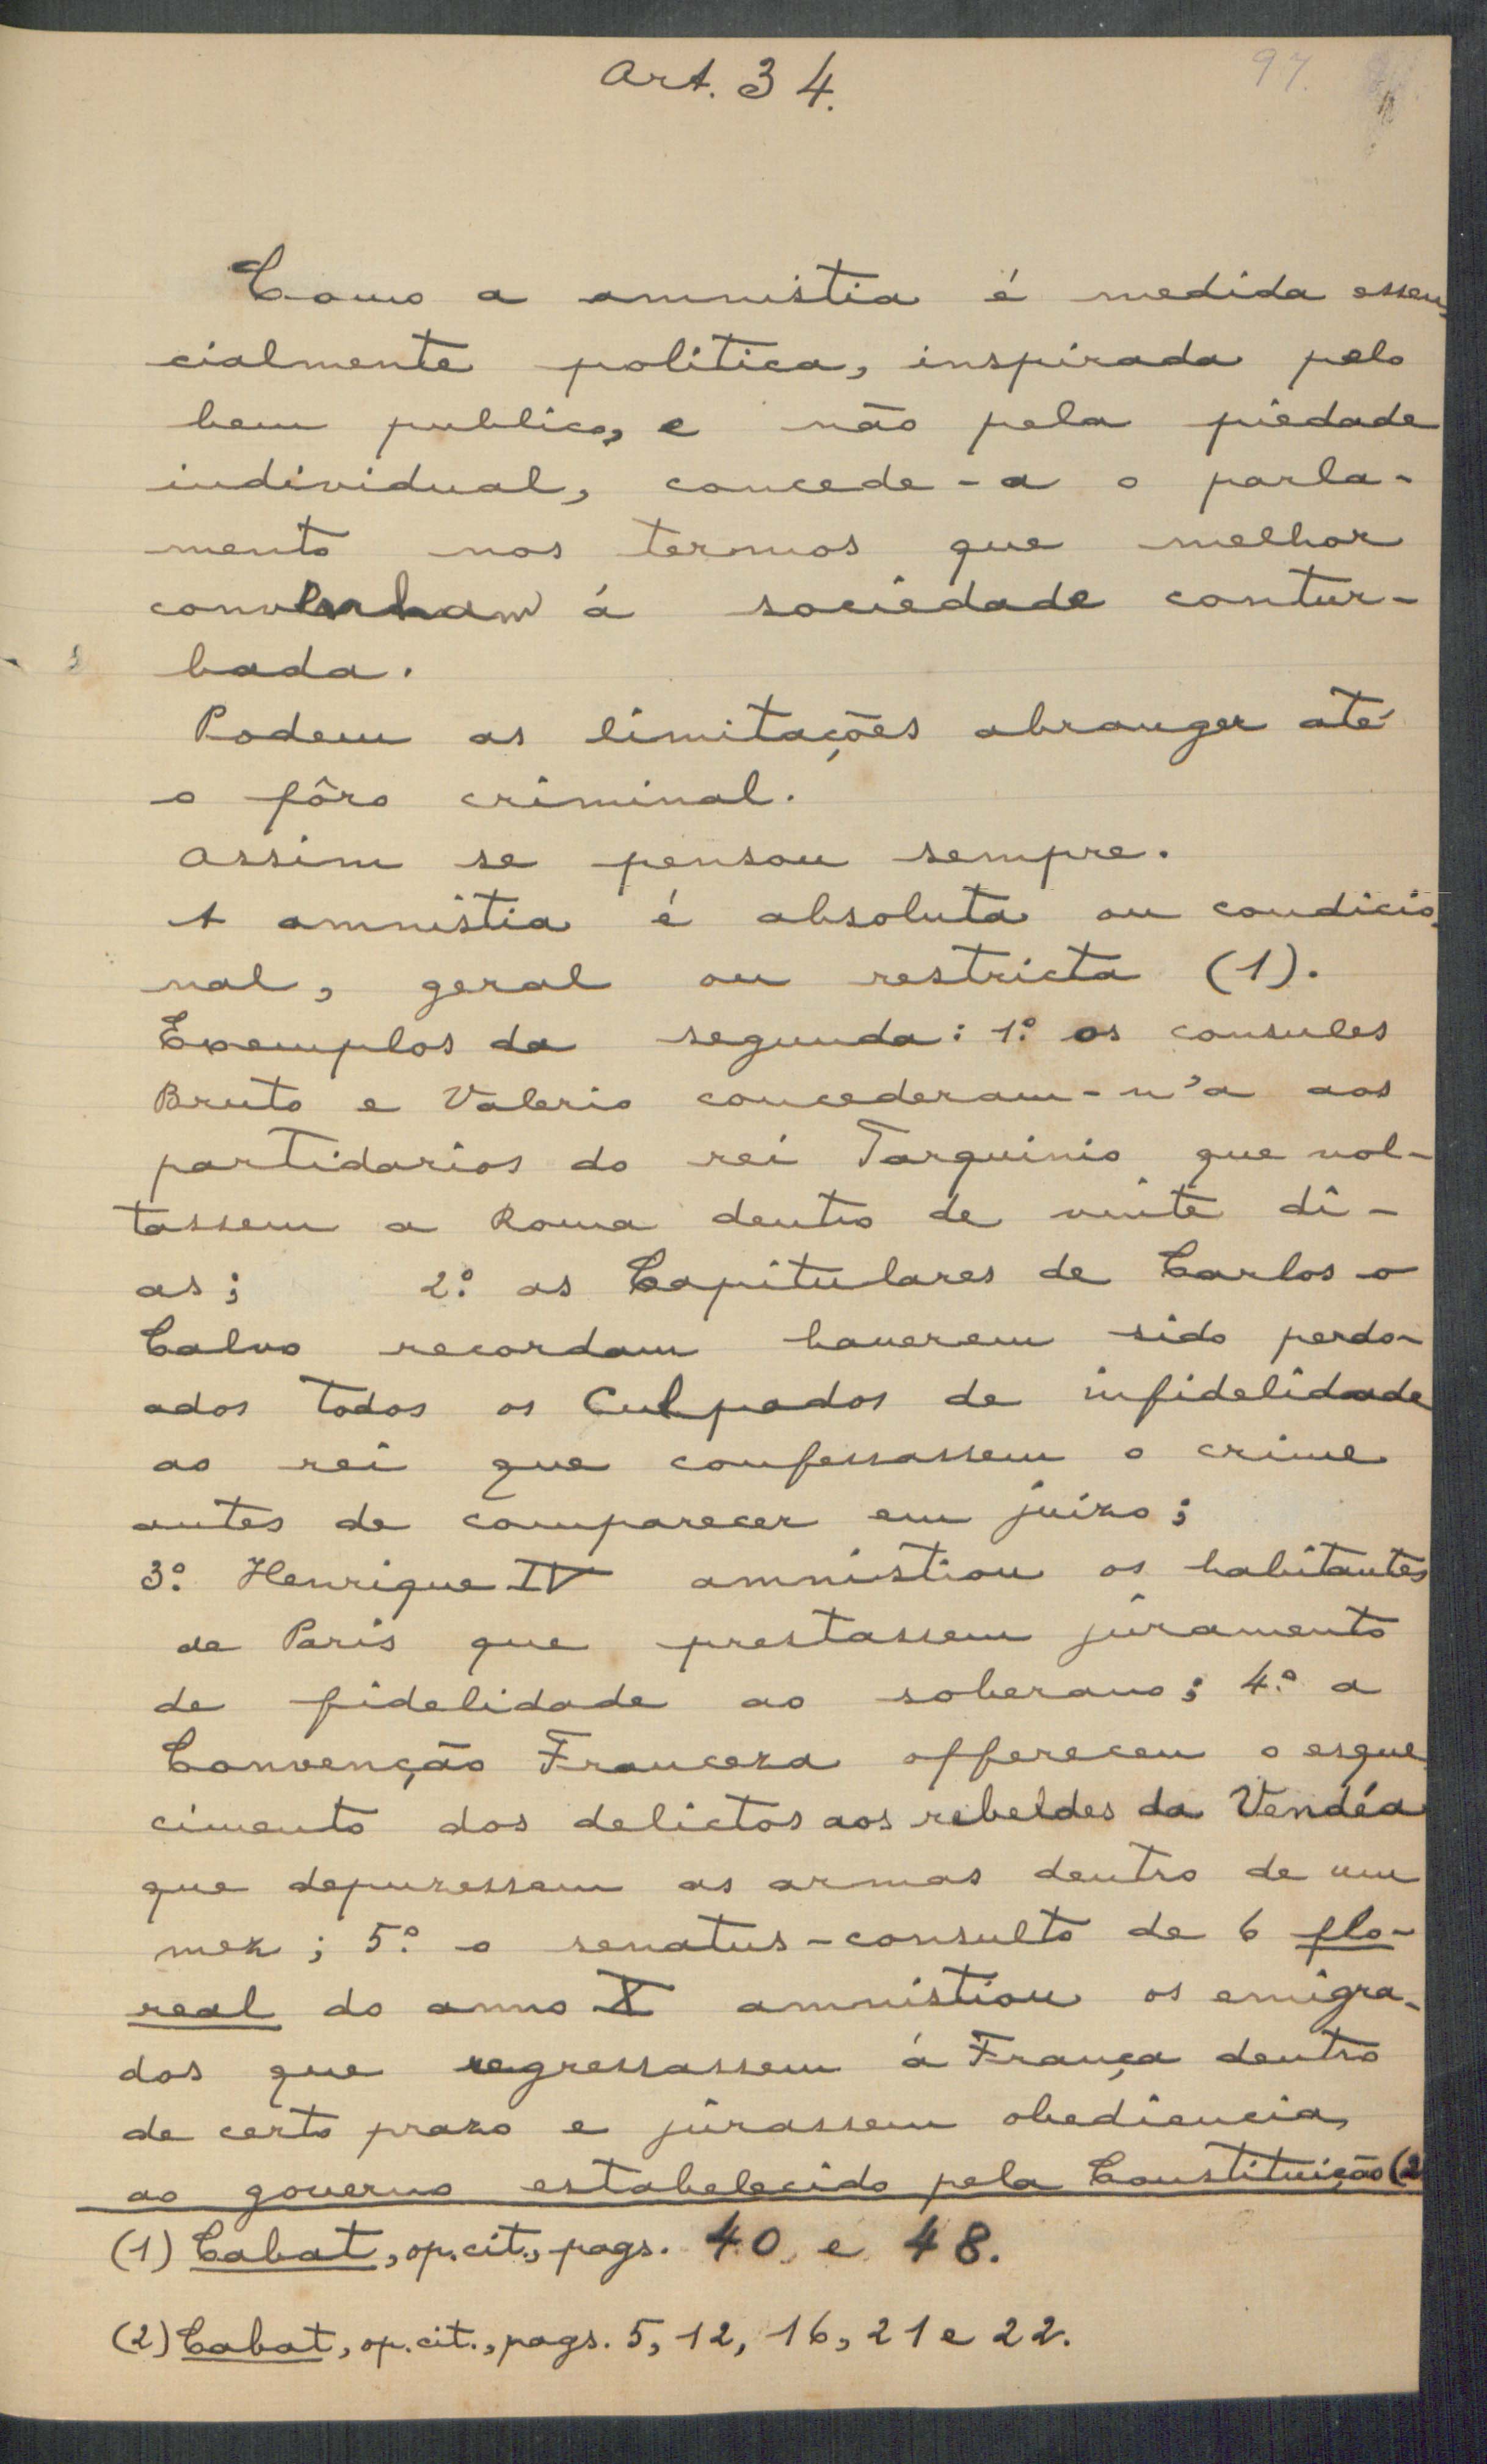 Art. 34.
97.
Como a amnistia é medida essen-
cialmente politica, inspirada pelo
bem publico, e não pela piedade
individual, concede-a o parla-
mento nos termos que melhor
convenham á sociedade contur-
bada.
Podem as limitações abranger até
o fôro criminal.
Assim se pensou sempre.
A amnistia é absoluta ou condicio-
nal, geral ou restricta (1).
Exemplos da segunda: 1º os consules
Bruto e Valerio concederam-n'a aos
partidarios do rei Tarquinio que vol-
tassem a Roma dentro de vinte di-
as; 2º as Capitulares de Carlos o
Calvo recordam haverem sido perdo-
ados todos os culpados de infidelidade
ao rei que confessassem o crime
antes de comparecer em juizo;
3º Henrique IV amnistiou os habitantes
de Paris que prestassem juramento
de fidelidade ao soberano; 4º a
Convenção Franceza offereceu o esque
cimento dos delictos aos rebeldes da Vendéa
que depuzessem as armas dentro de um
mez; 5º o senatus-consulto de 6 flo-
real do anno X amnistiou os emigra-
dos que regressassem á França dentro
de certo prazo e jurassem obediencia
ao governo estabelecido pela Constituição (2
(1) Cabat, op. cit., pags. 40 e 48.
(2) Cabat, op. cit., pags. 5, 12, 16, 21 e 22.